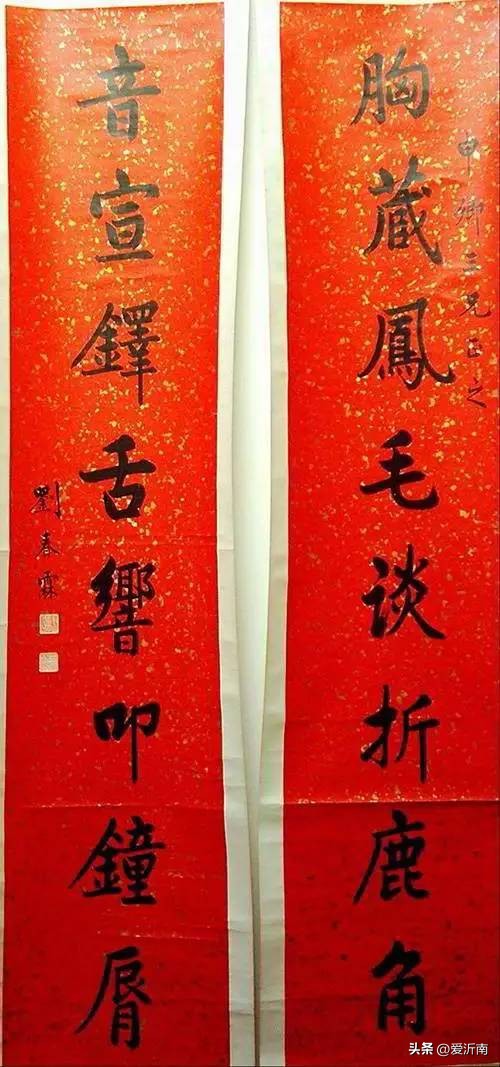 申卿三兄正之
胸蔵鳳毛谈折鹿角
音宣鐸舌響叩鐘脣
劉春霖
头条 @爱沂南